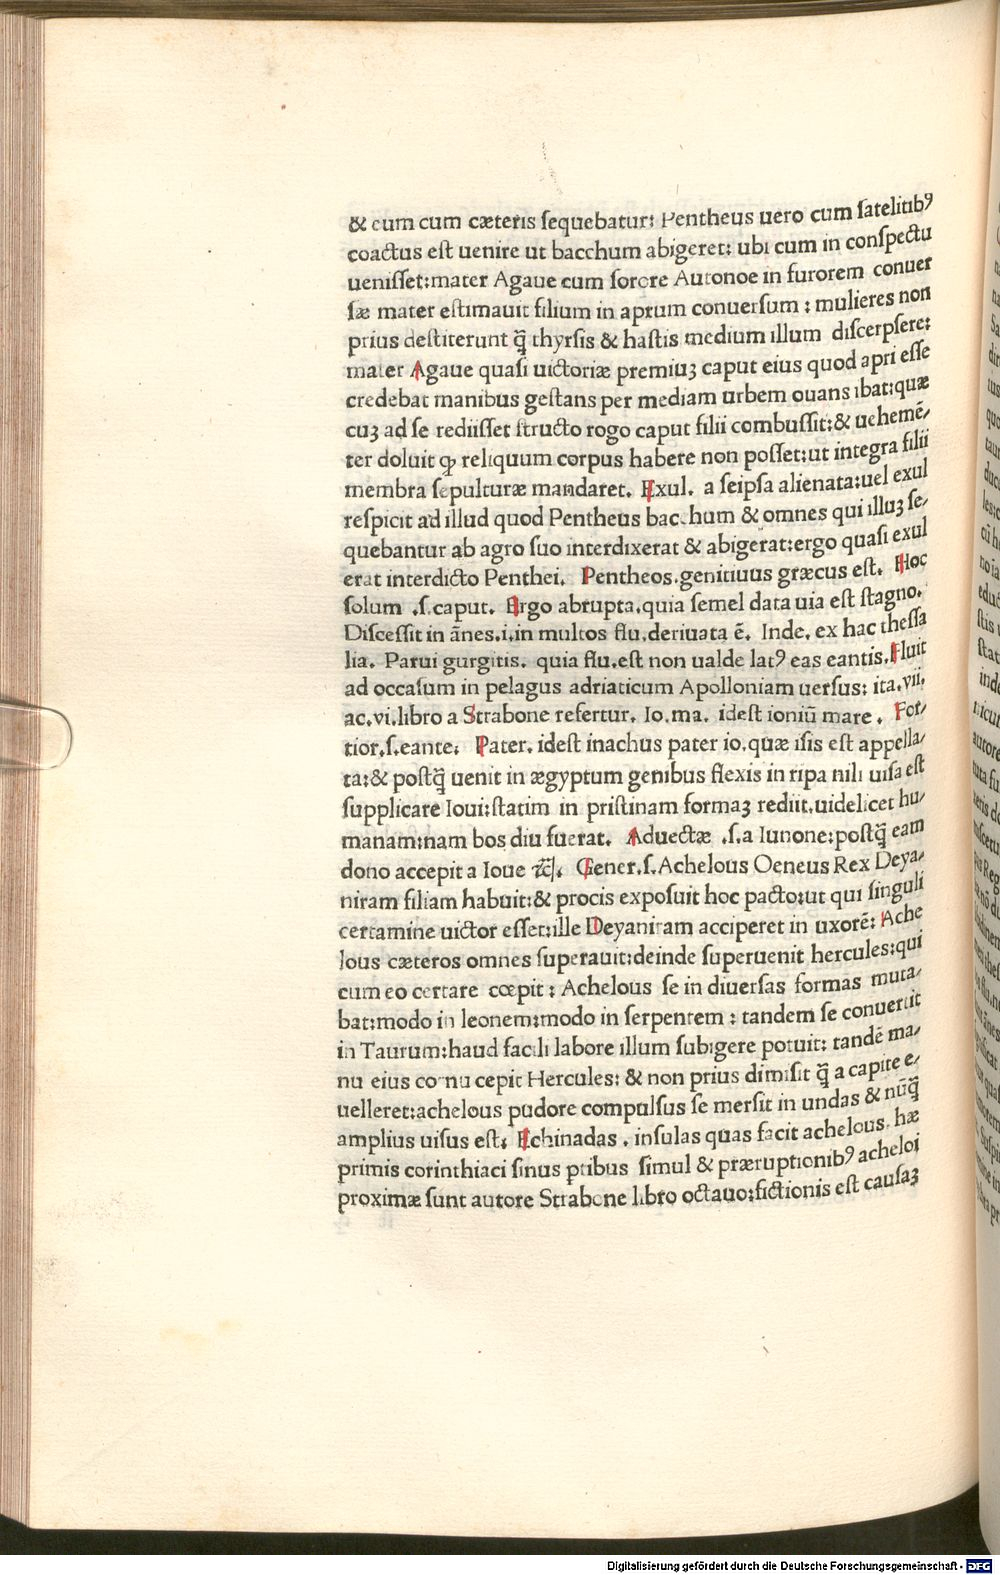 & eum cum cæteris ſequebatur: Pentheus uero cum ſatelitibꝰ
coactus eſt uenire ut bacchum abigeret: ubi cum in conſpectu
ueniſſet:mater Agaue cum ſorore Autonoe in furorem conuer
ſæ mater eſtimauit filium in aprum conuerſum : mulieres non
prius deſtiterunt q̃ thyrſis & haſtis medium illum diſcerpſere:
mater Agaue quaſi uictoriæ premiuꝫ caput eius quod apri eſſe
credebat manibus geſtans per mediam urbem ouans ibat:quæ
cuꝫ ad ſe rediiſſet ſtructo rogo caput filii combuſſit:& uehemē/
ter doluit ꝙ reliquum corpus habere non poſſet:ut integra filii
membra ſepulturæ mandaret. Exul. a ſeipſa alienata:uel exul
reſpicit ad illud quod Pentheus bacchum & omnes qui illuꝫ ſe/
quebantur ab agro ſuo interdixerat & abigerat:ergo quaſi exul
erat interdicto Penthei. Pentheos.genitiuus græcus eſt. Hoc
ſolum .ſ.caput. Ergo abrupta.quia ſemel data uia eſt ſtagno.
Diſceſſit in ãnes.i.in multos flu.deriuata ē. Inde. ex hac theſſa
lia. Parui gurgitis. quia flu.eſt non ualde latꝰ eas eantis.Fluit
ad occaſum in pelagus adriaticum Apolloniam uerſus: ita.vii.
ac.vi.libro a Strabone refertur. Io.ma. ideſt ioniū mare . For/
tior.ſ.eante: Pater. ideſt inachus pater io.quæ iſis eſt appella/
ta:& poſtq̃ uenit in ægyptum genibus flexis in ripa nili uiſa eſt
ſupplicare Ioui:ſtatim in priſtinam formaꝫ rediit.uidelicet hu/
manam:nam bos diu fuerat. Aduectæ .ſ.a Iunone:poſtq̃ eam
dono accepit a Ioue &c. Gener.ſ.Achelous Oeneus Rex Deya/
niram filiam habuit:& procis expoſuit hoc pacto:ut qui ſinguli
certamine uictor eſſet:ille Deyaniram acciperet in uxorē: Ache
lous cæteros omnes ſuperauit:deinde ſuperuenit hercules:qui
cum eo certare cœpit : Achelous ſe in diuerſas formas muta/
bat:modo in leonem:modo in ſerpentem : tandem ſe conuertit
in Taurum:haud facili labore illum ſubigere potuit: tandē ma/
nu eius cornu cepit Hercules: & non prius dimiſit q̃ a capite e/
uelleret:achelous pudore compulſus ſe merſit in undas & nūq̃
amplius uiſus eſt. Echinadas . inſulas quas facit achelous. hæ
primis corinthiaci ſinus ꝑtibus ſimul & præruptionibꝰ acheloi
proximæ ſunt autore Strabone libro octauo:fictionis eſt cauſaꝫ
Digitalisierung gefördert durch die Deutsche Forschungsgemeinschaft - DFG